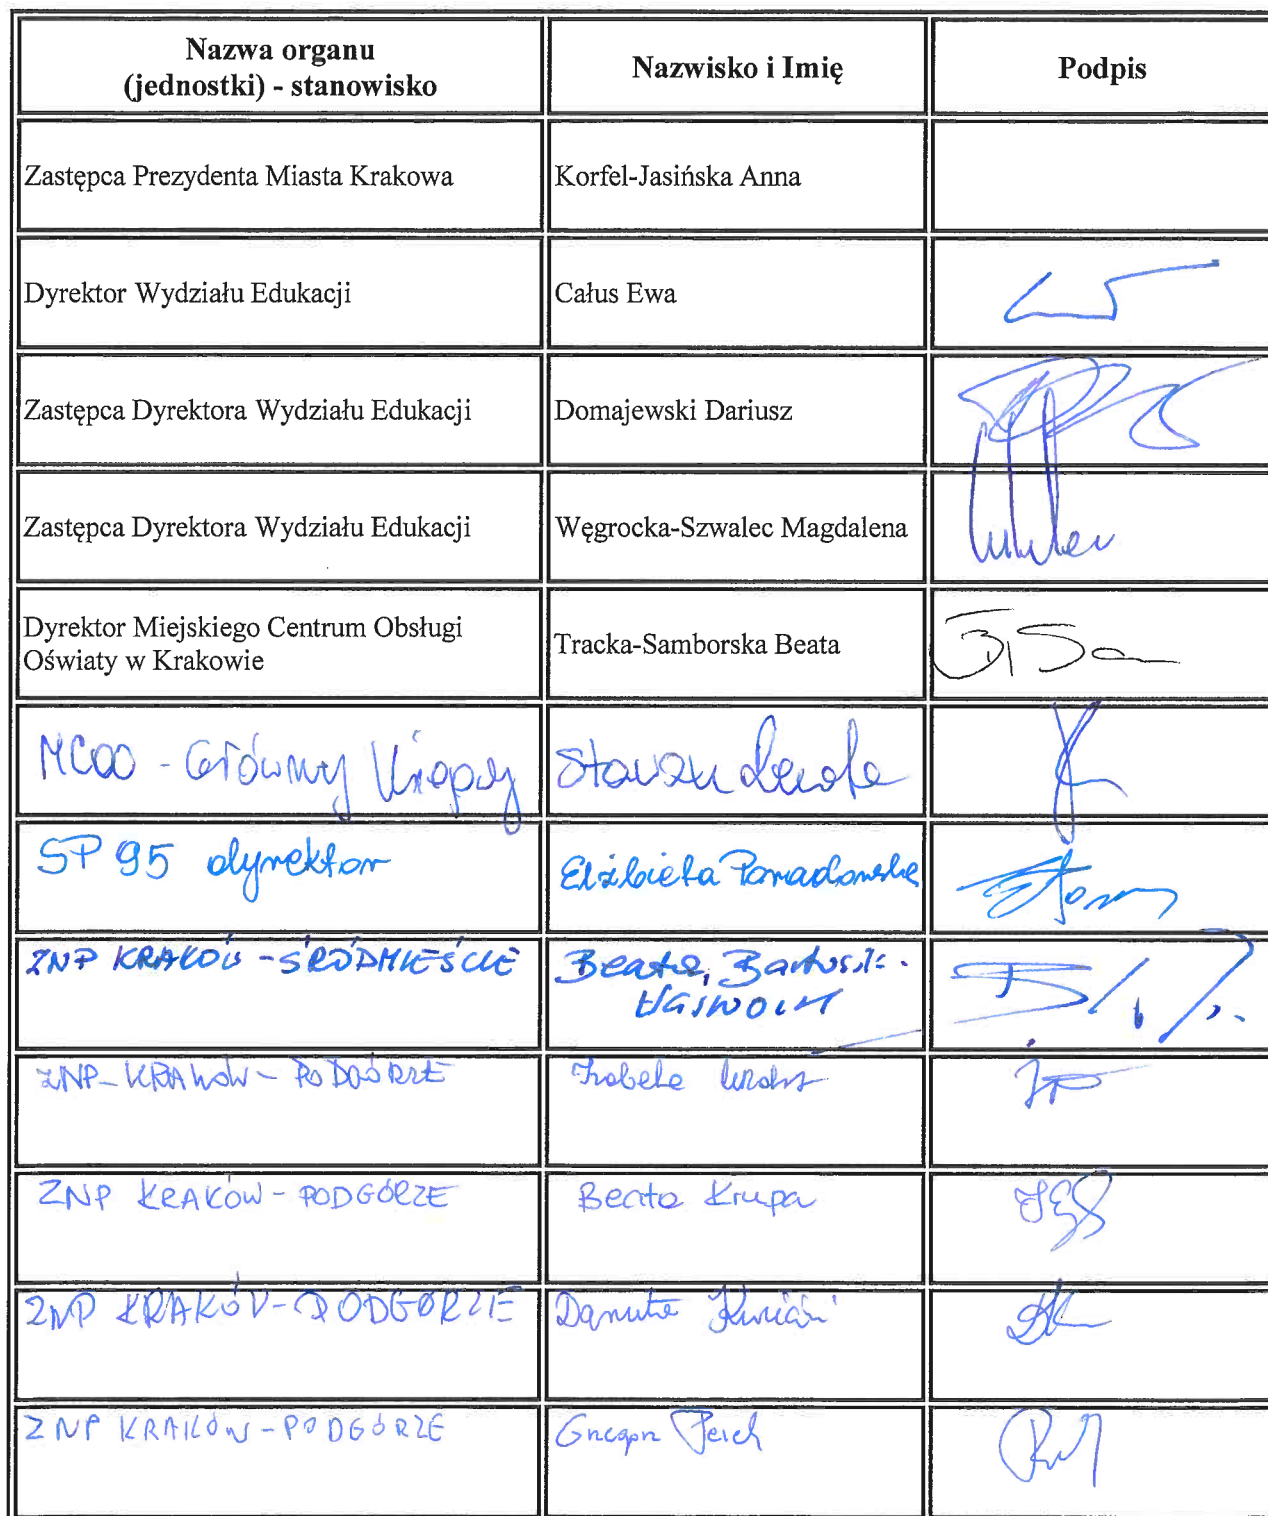 Nazwa organu
(jednostki) - stanowisko
Nazwisko i Imię
Podpis
Zastępca Prezydenta Miasta Krakowa
Korfel-Jasińska Anna
Dyrektor Wydziału Edukacji
Całus Ewa
Zastępca Dyrektora Wydziału Edukacji
Domajewski Dariusz
Zastępca Dyrektora Wydziału Edukacji
Węgrocka-Szwalec Magdalena
Dyrektor Miejskiego Centrum Obsługi
Oświaty w Krakowie
Tracka-Samborska Beata
MCOO - Główny
SP 95 dyrektor
Elżbieta
ZNP KRAKÓW - ŚRÓDMIEŚCIE
Beata
ZNP - KRAKÓW - PODGÓRZE
Izabela
ZNP KRAKÓW - PODGÓRZE
Beata Krupa
ZNP KRAKÓW - PODGÓRZE
Danuta
ZNP KRAKÓW - PODGÓRZE
Grzegorz